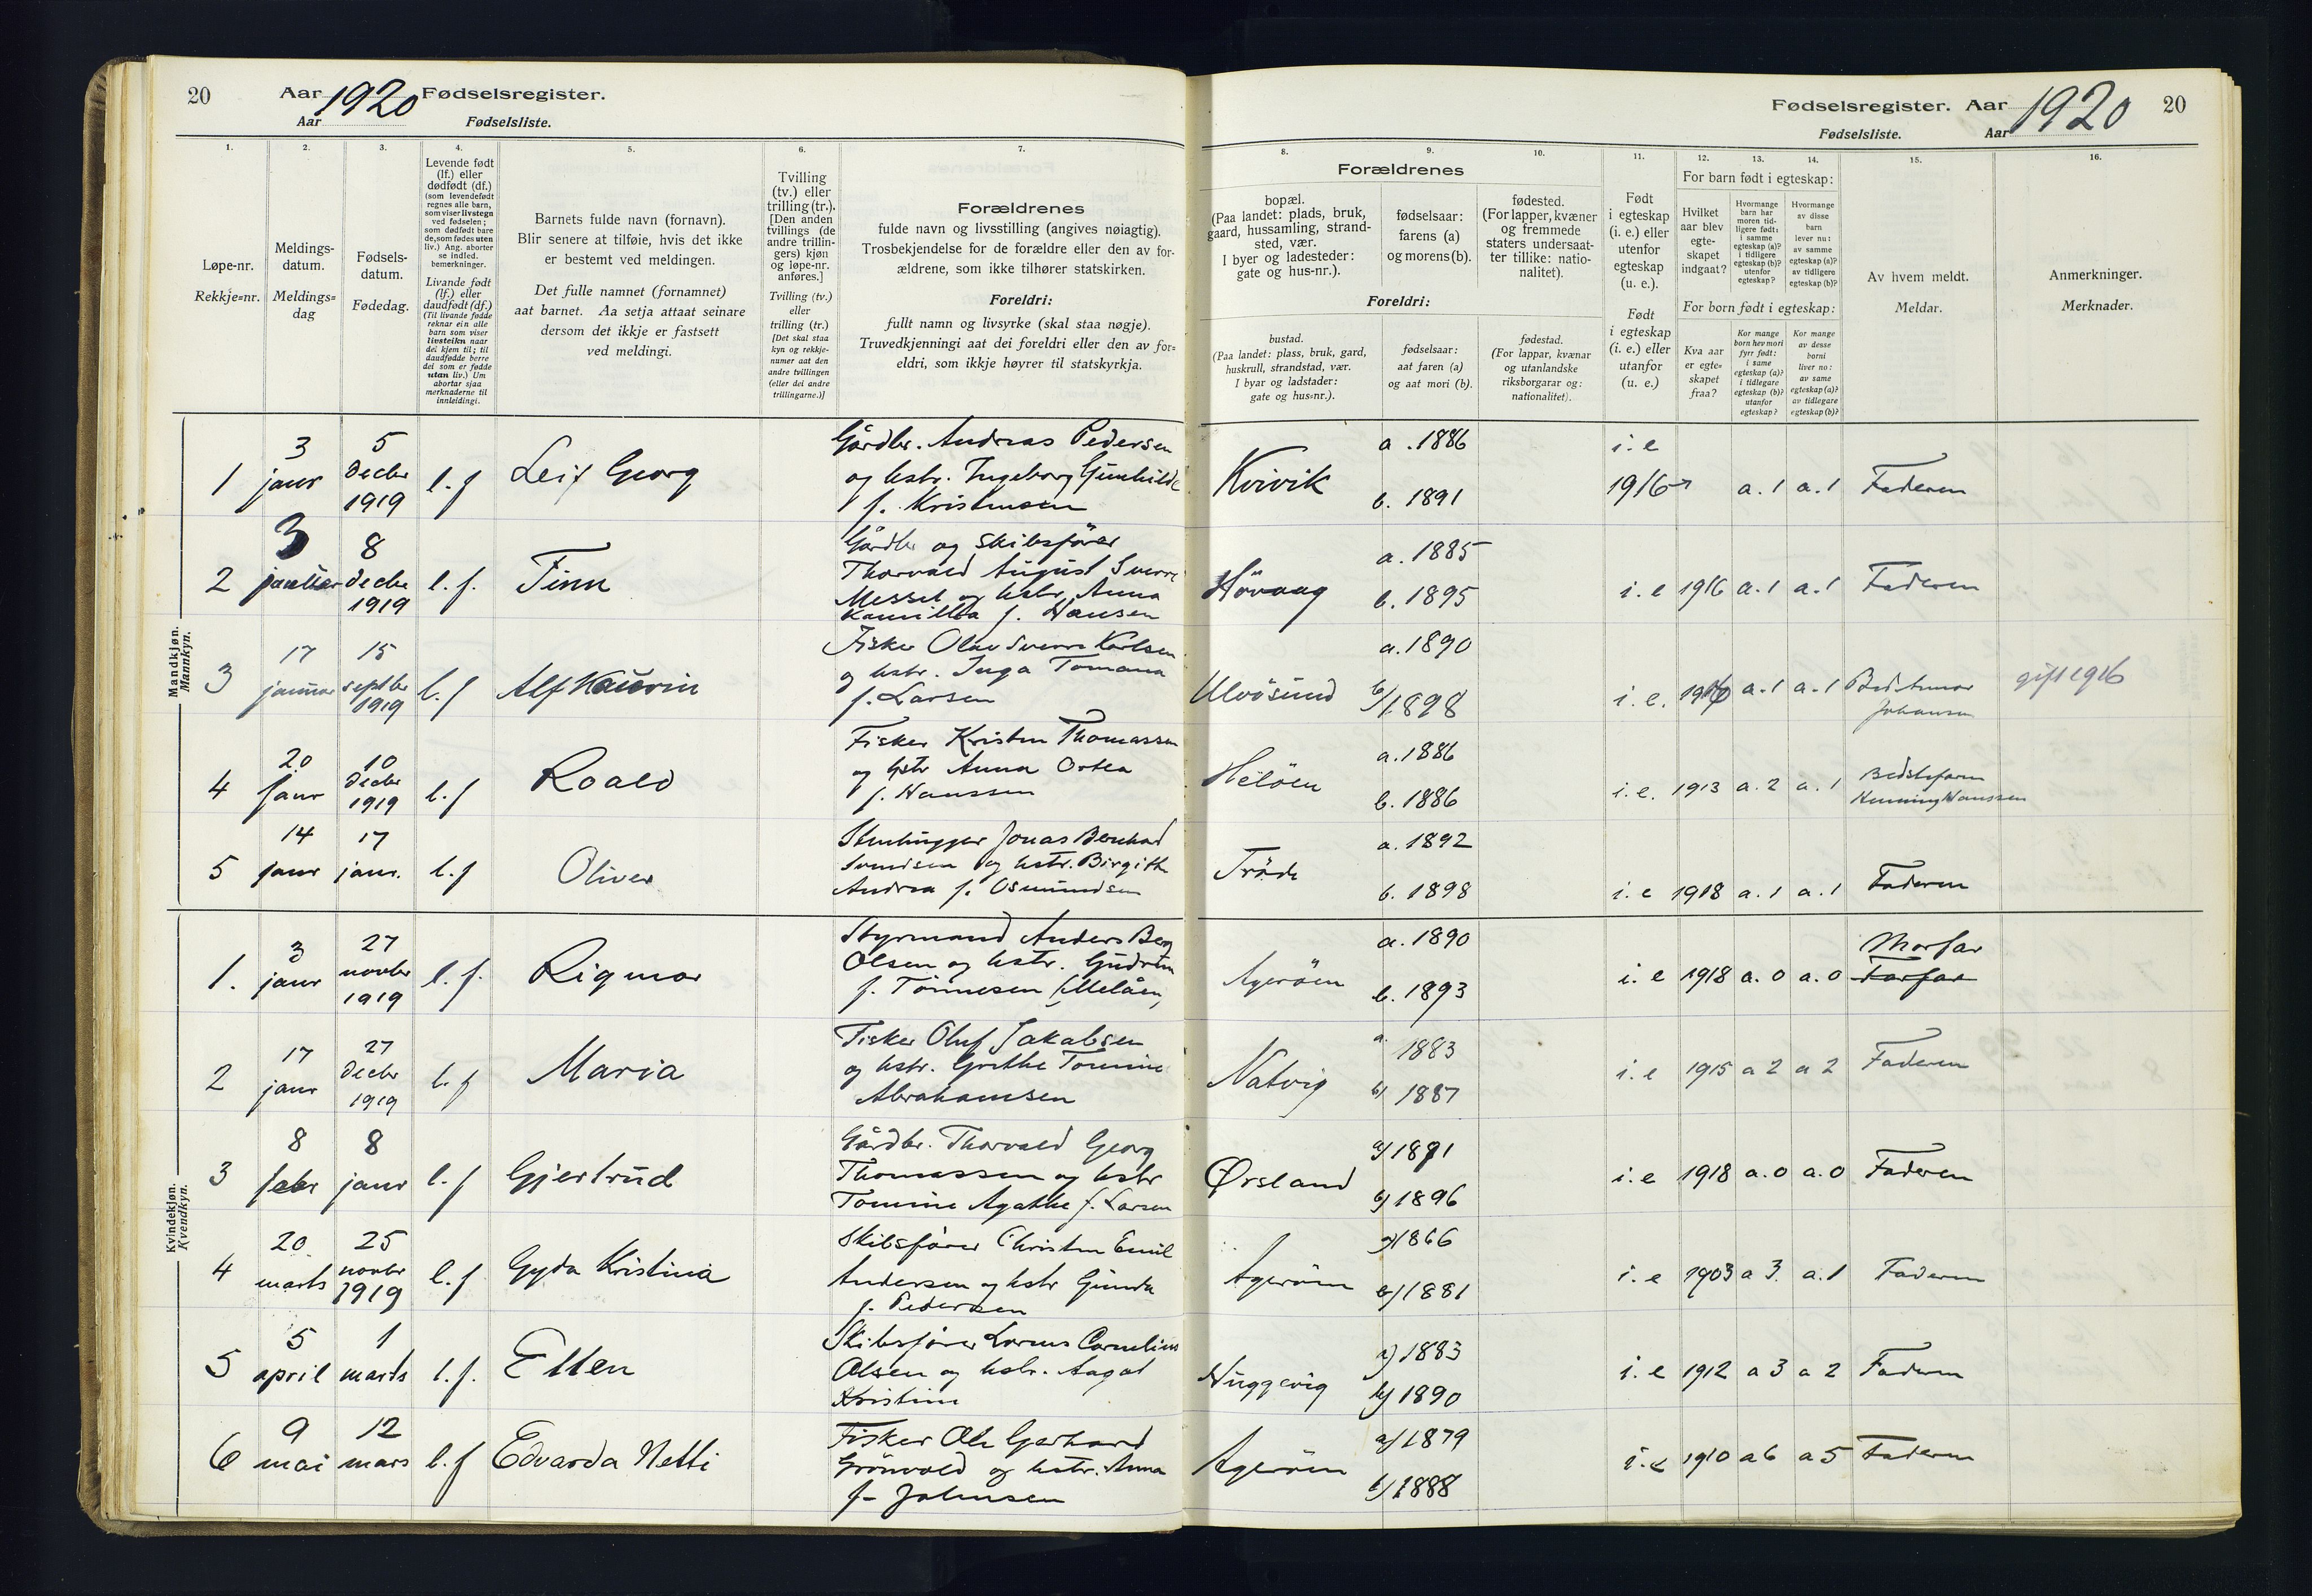 20 Aar 1920 Fødselsregister.
Aar Fødselsliste.
Fødselsregister. Aar 1920 20
Fødselsliste. Aar
1. 2. 3. 4. 5. 6. 7.
Løpe-nr.
Rekkje=nr.
Meldings-
datum.
Meldings=
dag
Fødsels-
datum.
Fødedag.
Levende født
(lf.) eller
dødfødt (df.)
(som levendefødt
regnes alle barn,
som viser livstegn
ved fødselen;
som dødfødt bare
de, som fødes uten
liv.) Ang. aborter
se indled.
bemerkninger.
Livande født
(lf.) eller
daudfødt (df.)
(Til livande fødde
reknar ein alle
barn som viser
livsteikn naar
dei kjem til; til
daudfødde berre
dei som er fødde
utan liv.) Um
abortar sjaa
merknaderne til
innleidingi.
Barnets fulde navn (fornavn).
Blir senere at tilføie, hvis det ikke
er bestemt ved meldingen.
Det fulle namnet (fornamnet)
aat barnet. Aa setja attaat seinare
dersom det ikkje er fastsett
ved meldingi.
Tvilling
(tv.) eller
trilling (tr.).
[Den anden
tvillings (de
andre trillin-
gers) kjøn
og løpe-nr.
anføres.]
Tvilling (tv.)
eller
trilling (tr.)
[Det skal staa
kyn og rekkje-
numer aat den
andre tvillingen
(eller dei andre
trillingarne.)]
Forældrenes
fulde navn og livsstilling (angives nøiagtig).
Trosbekjendelse for de forældre eller den av for-
ældrene, som ikke tilhører statskirken.
Foreldri:
fullt namn og livsyrke (skal staa nøgje).
Truvedkjenningi aat dei foreldri eller den av for=
eldri, som ikkje høyrer til statskyrkja.
8. 9. 10. 11. 12. 13. 14. 15. 16.
Forældrenes
bopæl.
(Paa landet: plads, bruk,
gaard, hussamling, strand-
sted, vær.
I byer og ladesteder:
gate og hus-nr.).
fødselsaar:
farens (a)
og morens (b).
fødested.
(For lapper, kvæner
og fremmede
staters undersaat-
ter tillike: natio-
nalitet).
Foreldri:
bustad.
(Paa landet: plass, bruk, gard,
huskrull, strandstad, vær.
I byar og ladstader:
gate og hus=nr.).
fødselsaar:
aat faren (a)
og aat mori (b).
fødestad.
(For lappar, kvænar
og utanlandske
riksborgarar og:
nationalitet).
Født
i egteskap
(i. e.) eller
utenfor
egteskap
(u. e.).
Født
i egteskap
(i. e.) eller
utanfor
(u. e.)
For barn født i egteskap:
Hvilket
aar blev
egte-
skapet
indgaat?
Hvormange
barn har
moren tid-
ligere født:
i samme
egteskap (a)?
i tidligere
egteskap (b)?
utenfor
egteskap?
Hvormange
av disse
barn
lever nu:
av samme
egteskap (a)?
av tidligere
egteskap (b)?
For born født i egteskap:
Kva aar
er egte-
skapet
fraa?
Kor mange
born hev mori
fyrr født:
i same
egteskap (a)?
i tidlegare
egteskap (b)?
utanfor
egteskap?
Kor mange
av desse
borni
liver no:
av same
egteskap (a)?
av tidlegare
egteskap (b)?
Av hvem meldt.
Meldar.
Anmerkninger.
Merknader.
Mandkjøn.
Mannkyn.
1 3 janr 5 decbr 1919 l.f Leif Georg
Gårdbr. Andreas Pedersen
og hstr. Ingeborg Gunhilde
f. Kristensen
Kvivik a. 1886 b. 1891 i.e 1916 a.1 a.1 Faderen
2 3 januar 8 decbr 1919 l.f. Finn
Gårdbr og skibsfører
Thorvald August Sverre
Messel og hstr. Anna
Kamilla f. Hansen
Hövaag a. 1885 b. 1895 i.e 1916 a.1 a.1 Faderen
3 17 januar 15 septbr 1919 l.f Alf Kaurin
Fisker Olav Sverre Karlsen
og hstr. Inga Tomana
f. Larsen
Ulvösund a. 1890 b/1898 i.e. 1916 a.1 a.1 Johansen gift 1916
4 20 janr 10 decbr 1919 l.f Roald
Fisker Kristen Thomassen
og hstr Anna Ostea
f. Hanssen
Helöen a. 1886 b. 1886 i.e. 1913 a.2 a.1 Bedstefaren
Henning Hanssen
5 14 janr 17 janr. l.f Oliver
Stenhugger Jonas Bernhard
Svendsen og hstr. Birgithe
Andrea f. Osmundsen
Tröde a. 1892 b. 1898 i.e 1918 a.1 a.1 Faderen
Kvindekjøn.
Kvendkyn.
1. 3 janr 27 novbr 1919 l.f. Rigmor
Styrmand Anders Berg
Olsen og hstr. Gudrun
f. Tönnesen (Melåen)
Ageröen a. 1890 b. 1893 i.e 1918 a.0 a.0 Morfar
Farfar
2 17 janr 27 decbr 1919 l.f Maria
Fisker Oluf Jakobsen
og hstr. Grethe Tomine
Abrahamsen
Natvig a 1883 b) 1887 i.e 1915 a 2 a 2 Faderen
3 8 febr 8 janr l.f Gjertrud
Gårdbr. Thorvald Georg
Thomassen og hstr
Tomine Agathe f. Larsen
Ørsland a) 1891 b) 1896 i.e 1918 a.0 a.0 Faderen
4 20 marts 25 novbr 1919 l.f Gyda Kristina
Skibsfører Christen Emil
Andersen og hstr Gunda
f. Pedersen
Ageröen a) 1866 b) 1881 i.e 1903 a 3. a.1 Faderen
5 5 april 1 marts l.f. Ellen
Skibsfører Lorens Cornelius
Olsen og hstr. Aagot
Kristine
Huggevig a) 1883 b) 1890 i.e 1912 a 3 a 2 Faderen
6 9 mai 12 mars l.f Edvarda Netti
Fisker Ole Gerhard
Grönvold og hstr. Anna
f- Johnsen
Ageröen a) 1879 b) 1888 i.e 1910 a 6 a 5 Faderen